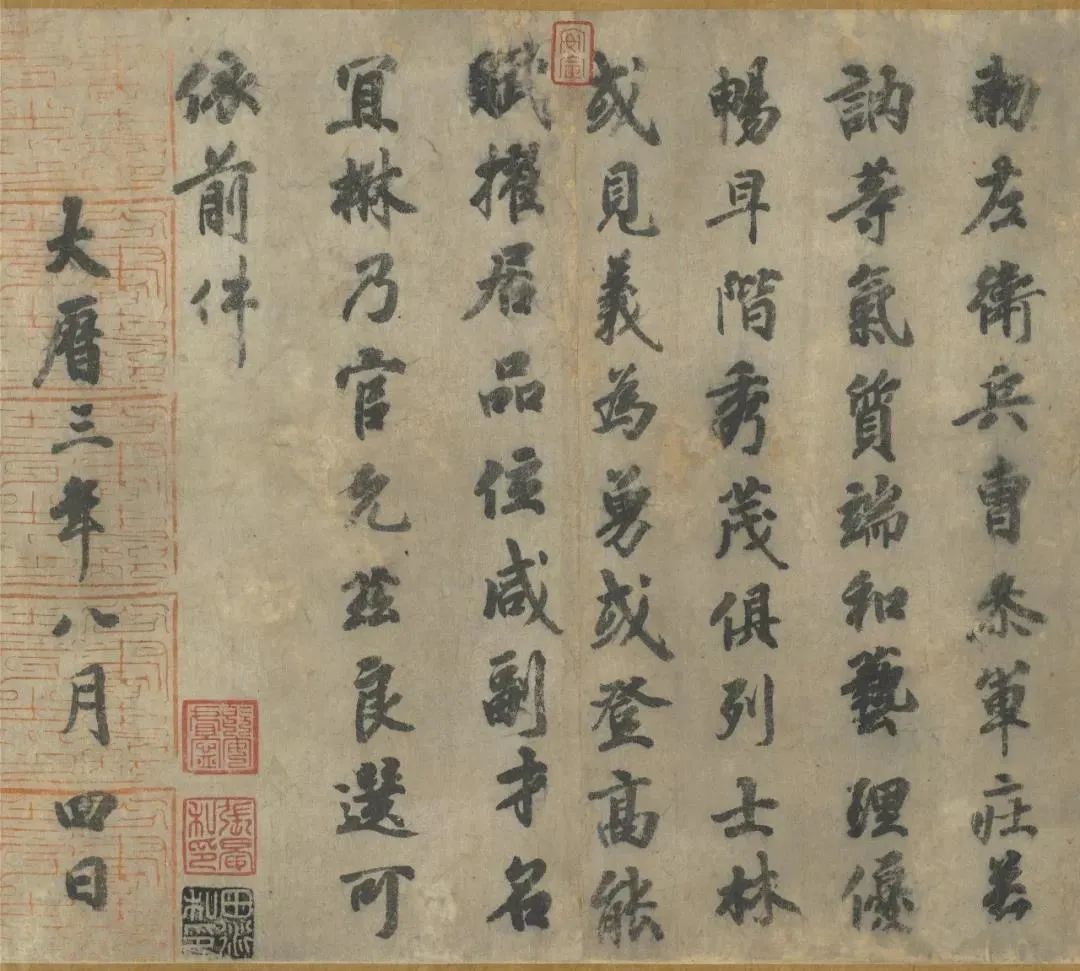 勅左衛兵曹叅軍庄若
訥等氣質端和藝理優
暢早階秀茂俱列士林
或見義為勇或登高能
賦擢居品位咸副才名
宜楙乃官允茲良選可
依前件
大曆三年八月四日